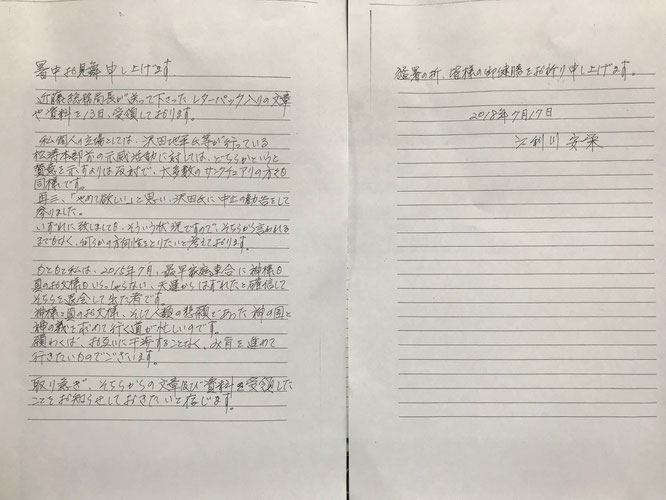 暑中お見舞申し上げます
近藤総務局長が送って下さったレターパック入りの文章
や資料を13日、受領しております。
私個人の立場としては、沢田地平氏等が行っている
松濤本部前の示威活動に対しては、どちらかというと
賛意を示すよりは反対で、大多数のサンクチュアリの方々と
同様です。
再三、「やめて欲しい」と思い、沢田氏に中止の勧告をして
参りました。
いずれに致しましても、そういう状況ですので、そちらから言われる
までもなく、何らかの方向性をとりたいと考えております。
もともと私は、2015年7月、最早家庭連合に神様も
真のお父様もいらっしゃらない、天運からはずれたと確信して
そちらを退会して出た者です。
神様と真のお父様、そして人類の悲願であった神の国と
神の義を求めて行く道が忙しいのです。
願わくば、お互いに干渉することなく、み旨を進めて
行きたいものでございます。
取り急ぎ、そちらからの文章及び資料を受領した
ことをお知らせしておきたいと存じます。
猛暑の折、皆様の御健勝をお祈り申し上げます。
2018年7月17日
江利川安栄